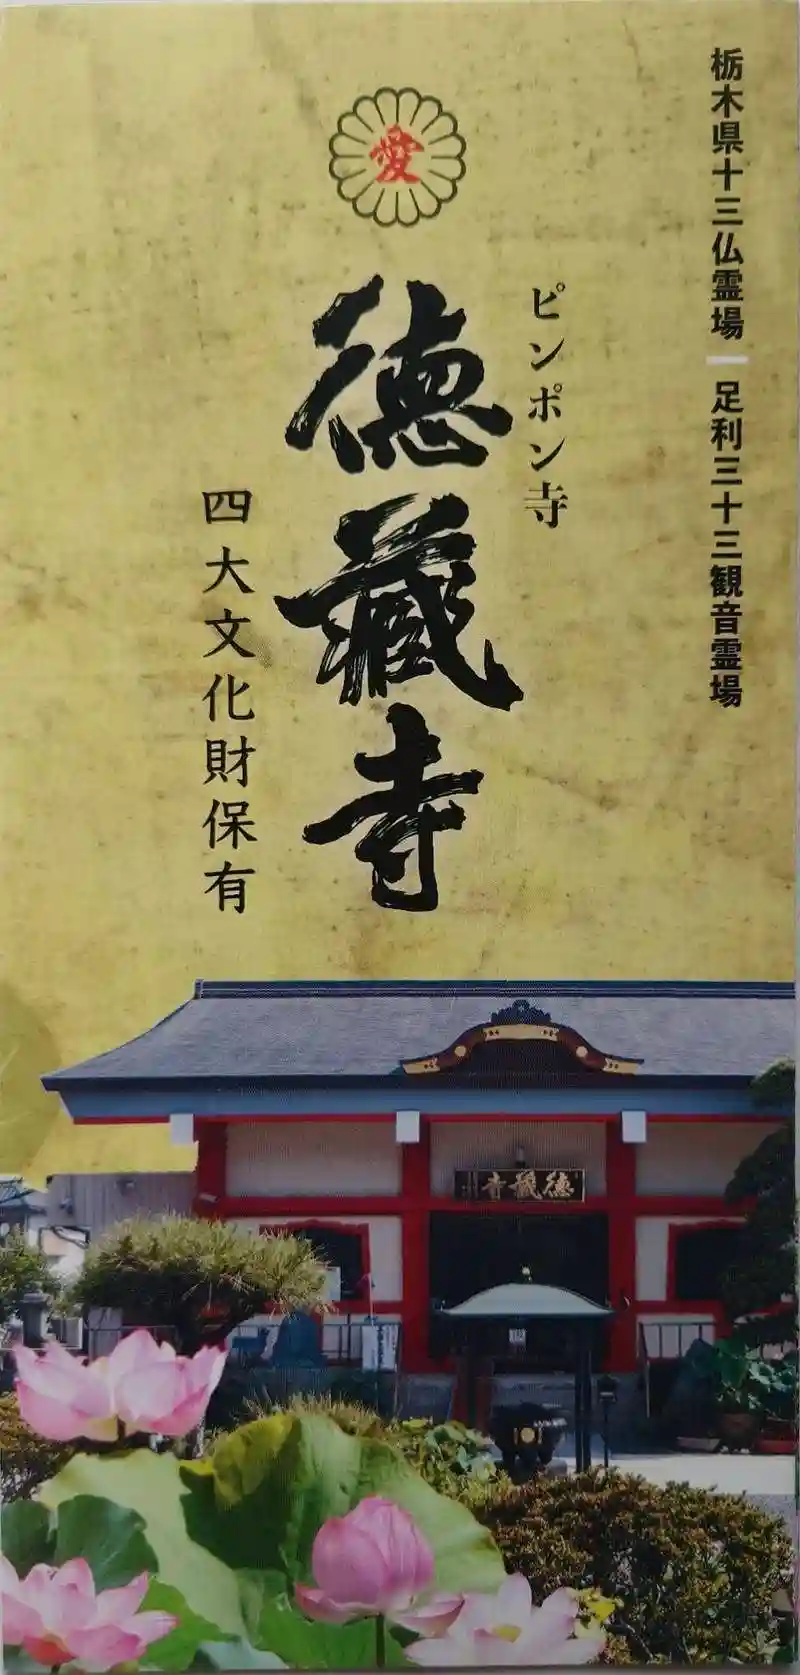 栃木県十三仏霊場 足利三十三観音霊場
ピンポン寺
愛
徳藏寺
四大文化財保有
徳藏寺